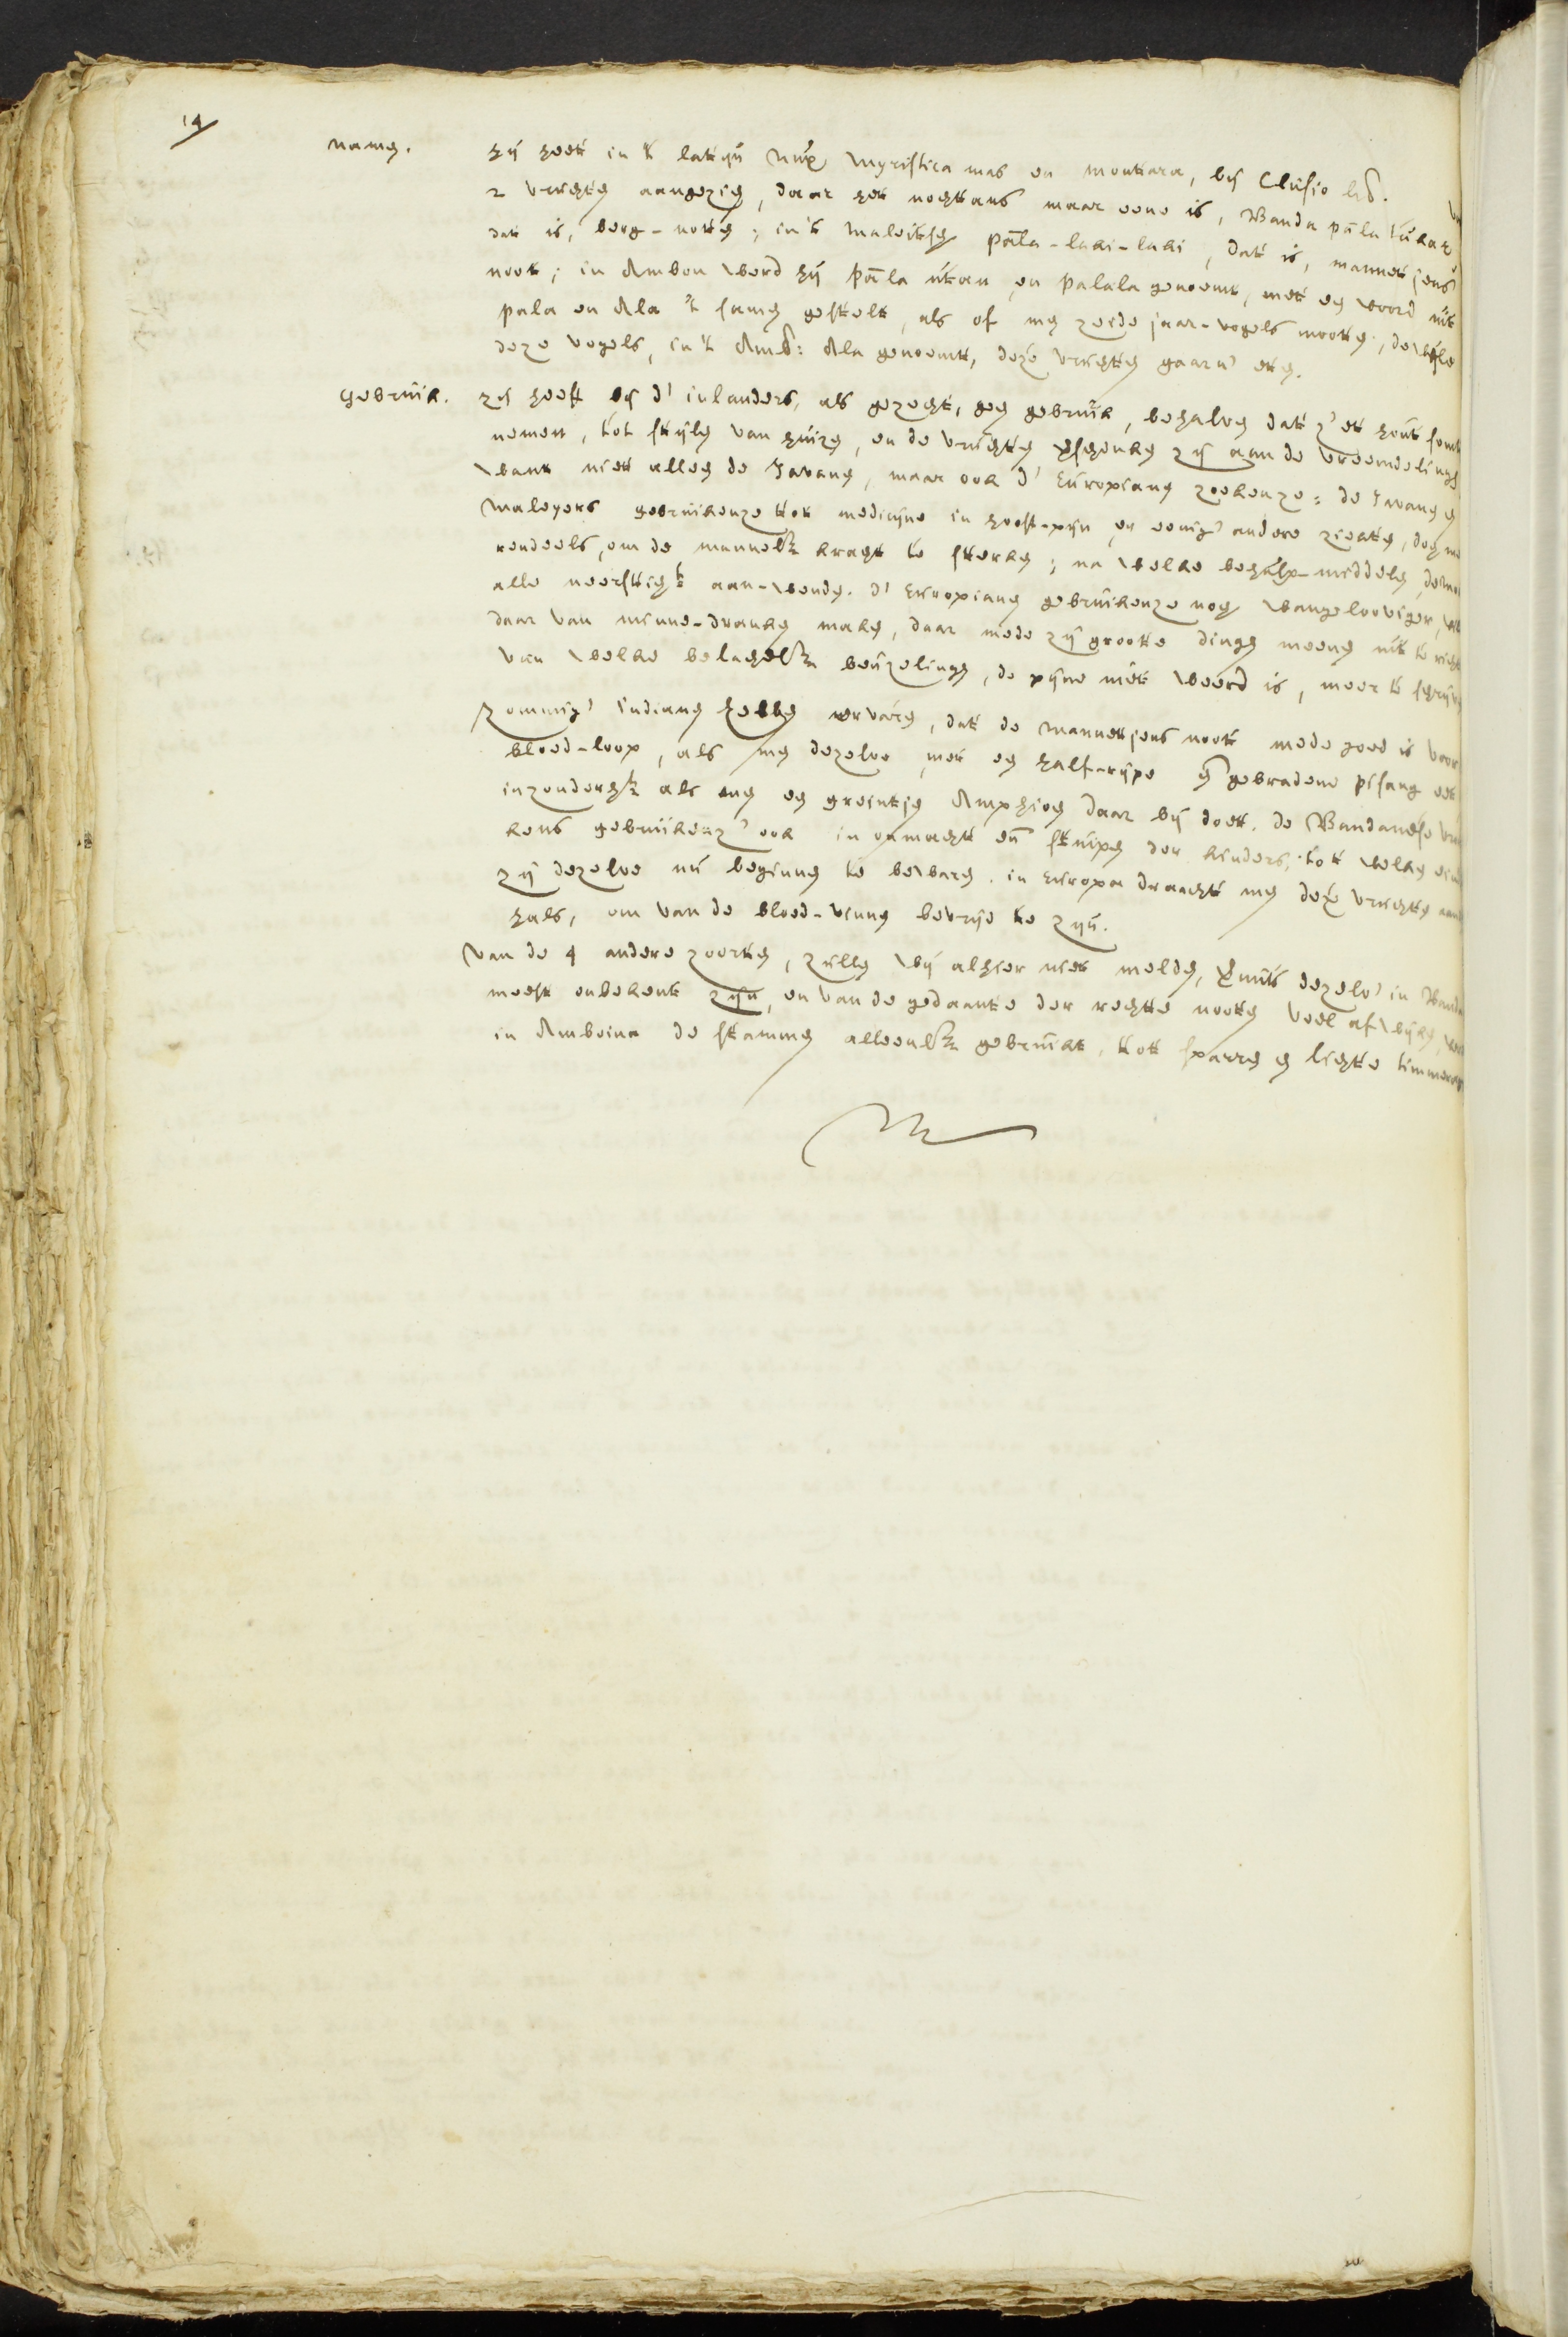 14
namen.
hij heet in 't latijn Nux Myristica mas en montana, bij Clusio lib.
2 vruchten aangezien, daar het nochtans maar eene is, Banda pala tukar
dat is, berg-noten; in't Maleitsch pala-laki-laki, dat is, mannetjens
noot; in Ambon werd hij pala utan en palala genoemt, met en woord uit
pala en Ala 't samen gestelt, als of men zeide jaar-vogels nooten, dewijle
deze vogels, in 't Amb: Ala genoemt, deze vruchten gaarn' eten.
Gebruik.
zij heeft bij d' inlanders, als gezecht, geen gebruik, behalven dat z' et hout somt
nemen, tot stijlen van huizen, en de vruchten schenken zij aan de vreemdelingen
want niet alleen de Javanen, maar ook d' Europianen zoekenze: de Javanen en
Maleyers gebruikenze tot medicijne in hooft-pijn en eenig' andere ziekten, doch me
rendeels, om de mannelk kracht te sterken; na welke behulp-middelen, de
alle neerstich aan-wenden. d' Europianen gebruikenze noch wangelooviger,
daar van minne-dranken maken, daar mede zij grootte dingen meenen uit te richt
van welke belachelk beuzelingen, de pijne niet weerd is, meer te schrijven
zommig' Indianen hebben ervaren, dat de mannetjens noot mede goed is voor
bloed-loop, als men dezelve met en half-rijpe en gebradene pisang eet
inzonderh als men en greintjen Amphioen daar bij doet. de Bandanese
kens gebruikenz' ook in onmacht en stuipen der kinders, tot welken
zij dezelve nu beginnen te bewaren. in Europa draacht men deze vruchten aan
hals, om van de bloed-vinnen bevrijt te zijn.
van de 4 andere zoorten, zullen wij alhier niet melden, vermits dezelv' in Banda
meest onbekent zijn, en van de gedaante der rechte nooten veel afwijken,
in Amboina de stammen alleenlk gebruikt, tot sparren en lichte timmera